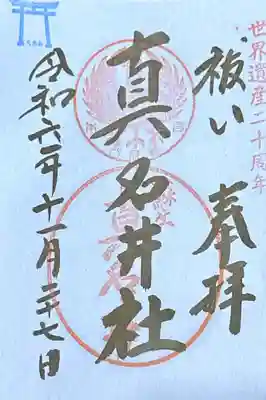 世界遺産二十周年
祓い
奉拝
真名井社
令和六年十一月二十七日